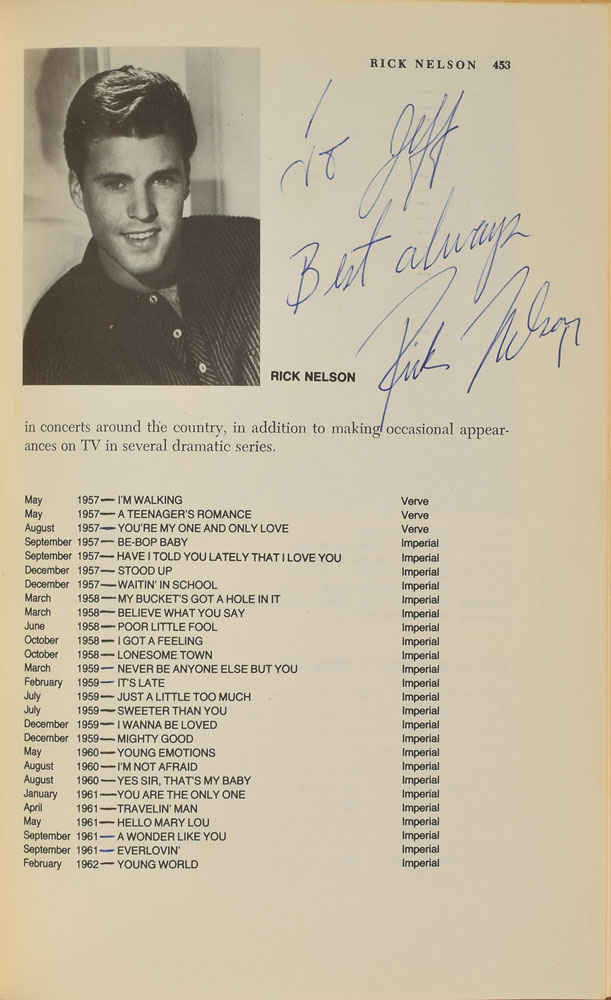 RICK NELSON 453
To Jeff
Best always
Rick Nelson
RICK NELSON
in concerts around the country, in addition to making occasional appear-
ances on TV in several dramatic series.
May 1957—I'M WALKING Verve
May 1957—A TEENAGER'S ROMANCE Verve
August 1957—YOU'RE MY ONE AND ONLY LOVE Verve
September 1957—BE-BOP BABY Imperial
September 1957—HAVE I TOLD YOU LATELY THAT I LOVE YOU Imperial
December 1957—STOOD UP Imperial
December 1957—WAITIN' IN SCHOOL Imperial
March 1958—MY BUCKET'S GOT A HOLE IN IT Imperial
March 1958—BELIEVE WHAT YOU SAY Imperial
June 1958—POOR LITTLE FOOL Imperial
October 1958—I GOT A FEELING Imperial
October 1958—LONESOME TOWN Imperial
March 1959—NEVER BE ANYONE ELSE BUT YOU Imperial
February 1959—IT'S LATE Imperial
July 1959—JUST A LITTLE TOO MUCH Imperial
July 1959—SWEETER THAN YOU Imperial
December 1959—I WANNA BE LOVED Imperial
December 1959—MIGHTY GOOD Imperial
May 1960—YOUNG EMOTIONS Imperial
August 1960—I'M NOT AFRAID Imperial
August 1960—YES SIR, THAT'S MY BABY Imperial
January 1961—YOU ARE THE ONLY ONE Imperial
April 1961—TRAVELIN' MAN Imperial
May 1961—HELLO MARY LOU Imperial
September 1961—A WONDER LIKE YOU Imperial
September 1961—EVERLOVIN' Imperial
February 1962—YOUNG WORLD Imperial